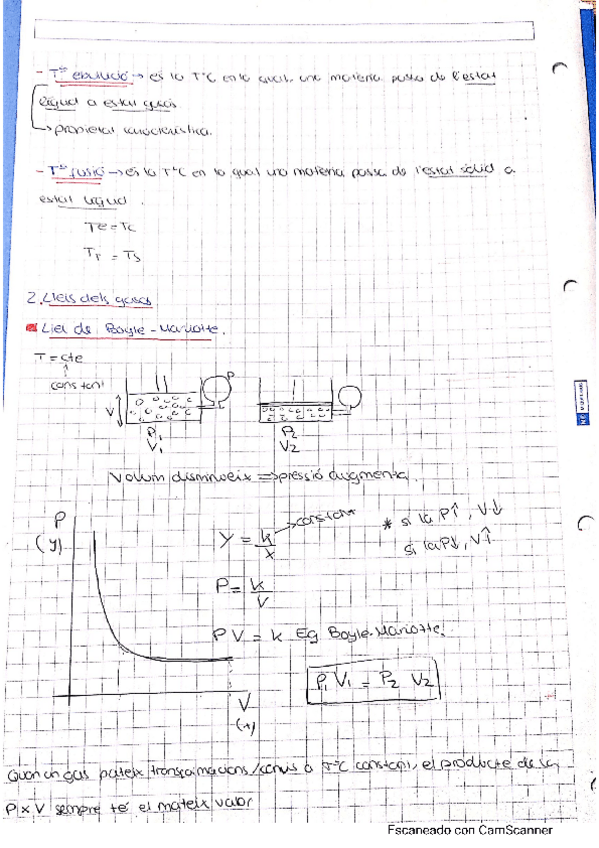 - Tª ebullició → és la TºC en la qual una matèria passa de l'estat
líquid a estat gasós.
→ propietat característica.
- Tª fusió → és la TºC en la qual una matèria passa de l'estat sòlid a
estat líquid.
Te = Tc
TF = TS
2. Lleis dels gasos
Llei de Boyle - Mariotte.
T = cte
↑
constant
P
V
P1 P2
V1 V2
Volum disminueix => pressió augmenta.
P
(y)
Y = k/x → constant
* si la P↑, V↓
si la P↓, V↑
P = k/V
PV = k Eq Boyle-Mariotte.
P1 V1 = P2 V2
V
(x)
Quan un gas pateix transformacions/canvis a TºC constant, el producte de la
P x V sempre té el mateix valor
Escaneado con CamScanner